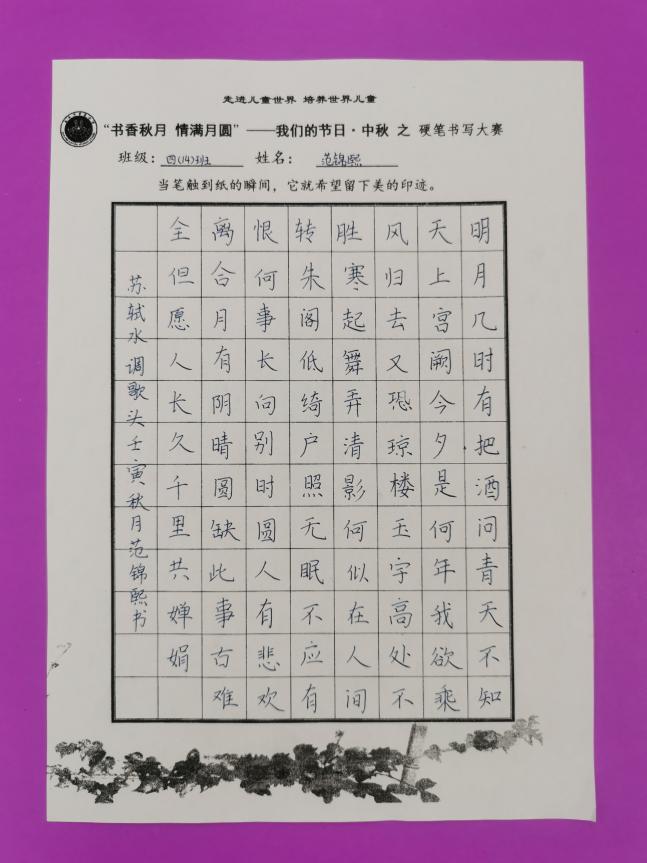 走进儿童世界 培养世界儿童
“书香秋月 情满月圆”——我们的节日·中秋 之 硬笔书写大赛
班级：四(14)班 姓名：范锦熙
当笔触到纸的瞬间，它就希望留下美的印迹。
明月几时有把酒问青天不知
天上宫阙今夕是何年我欲乘
风归去又恐琼楼玉宇高处不
胜寒起舞弄清影何似在人间
转朱阁低绮户照无眠不应有
恨何事长向别时圆人有悲欢
离合月有阴晴圆缺此事古难
全但愿人长久千里共婵娟
苏轼水调歌头壬寅秋月范锦熙书